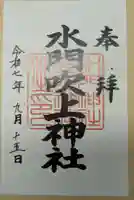 奉拝
水門吹上神社
令和七年九月十五日